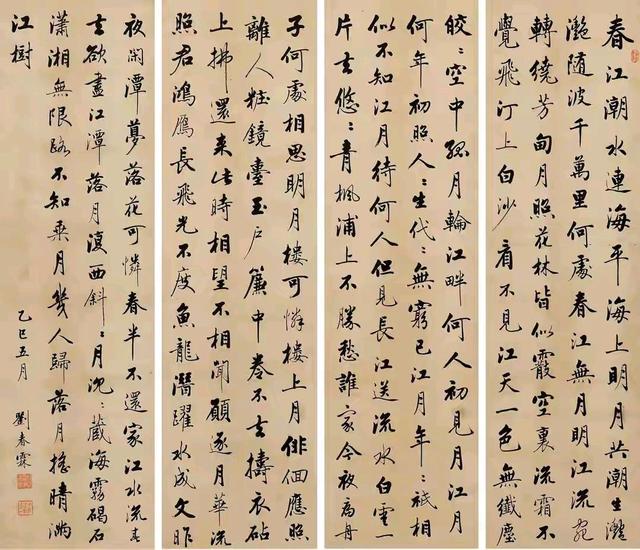 春江潮水連海平海上明月共潮生灩
灩随波千萬里何處春江無月明江流宛
轉繞芳甸月照花林皆似霰空裏流霜不
覺飛汀上白沙看不見江天一色無纖塵
皎〻空中孤月輪江畔何人初見月江月
何年初照人〻生代〻無窮已江月年〻祇相
似不知江月待何人但見長江送流水白雲一
片去悠〻青楓浦上不勝愁誰家今夜扁舟
子何處相思明月樓可憐樓上月徘徊應照
離人粧鏡臺玉戶簾中卷不去擣衣砧
上拂還来此時相望不相聞願逐月華流
照君鴻鴈長飛光不度魚龍潛躍水成文昨
夜閑潭夢落花可憐春半不還家江水流春
去欲盡江潭落月復西斜〻月沈〻藏海霧碣石
瀟湘無限路不知乘月幾人歸落月搖晴滿
江樹
乙巳五月 劉春霖